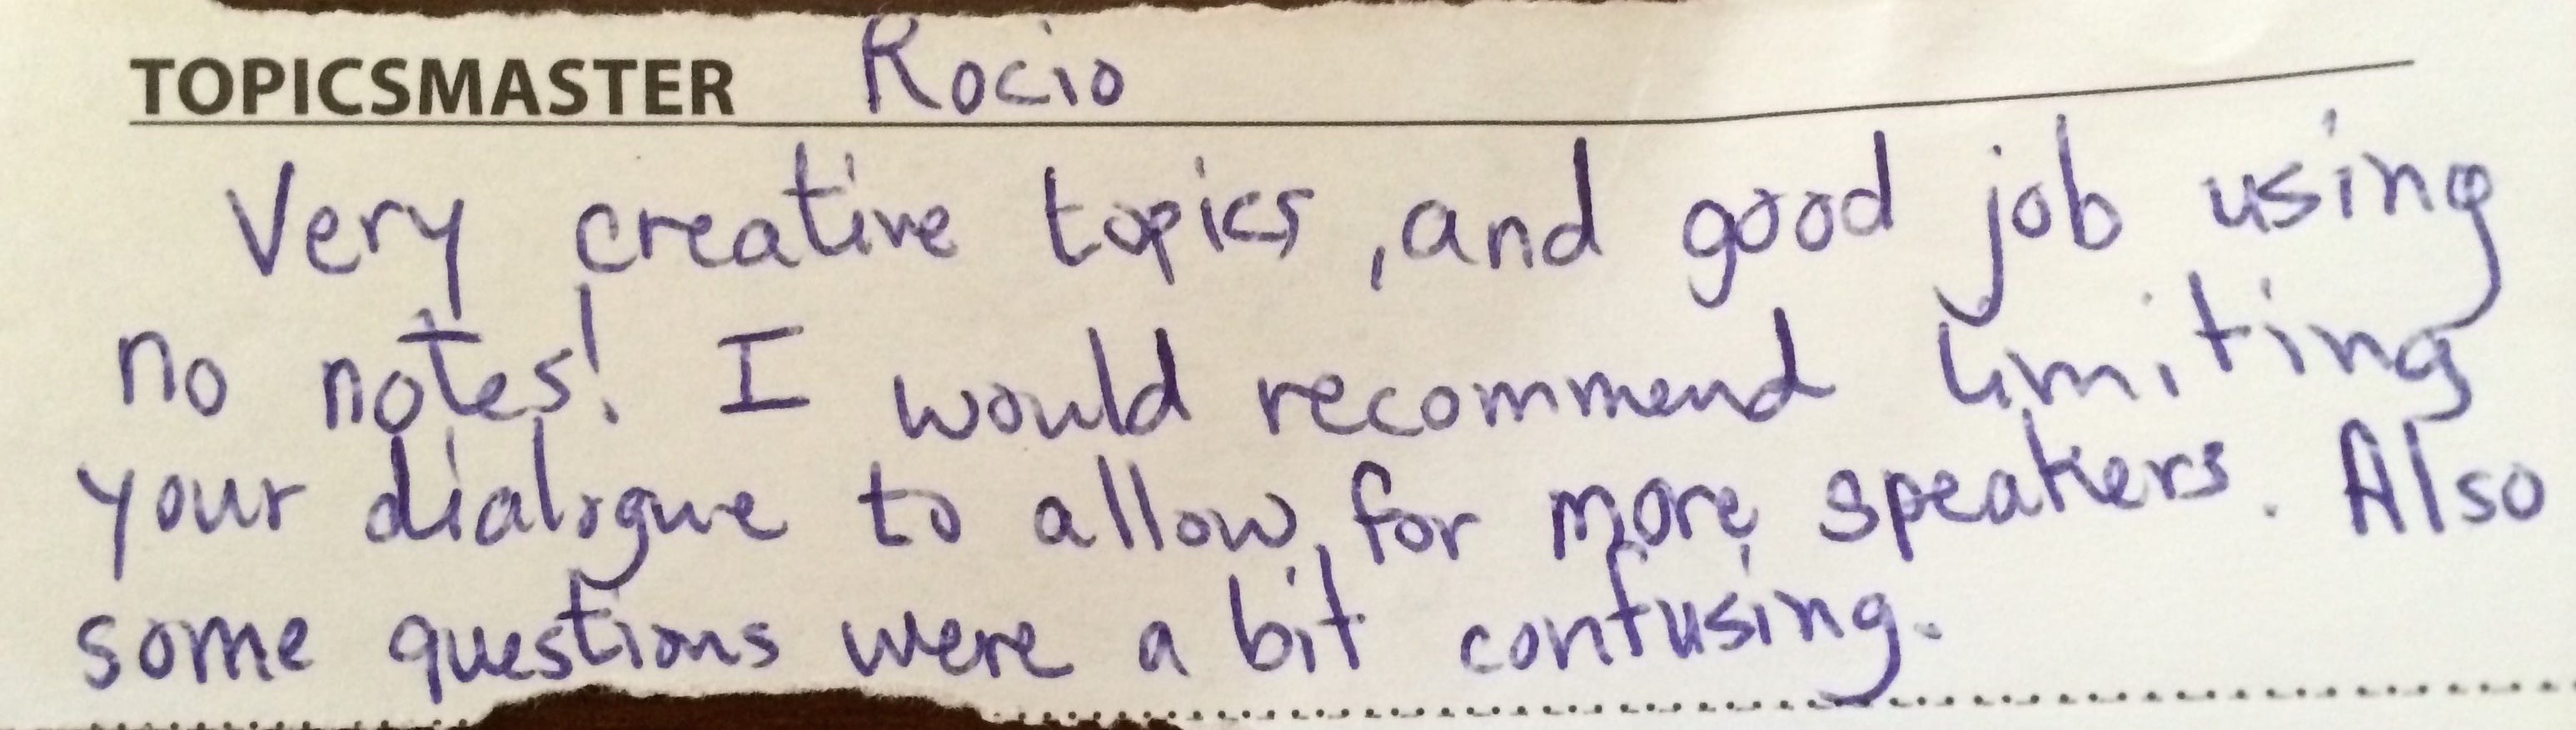 TOPICSMASTER Rocio
Very creative topics, and good job using
no notes! I would recommend limiting
your dialogue to allow for more speakers. Also
some questions were a bit confusing.